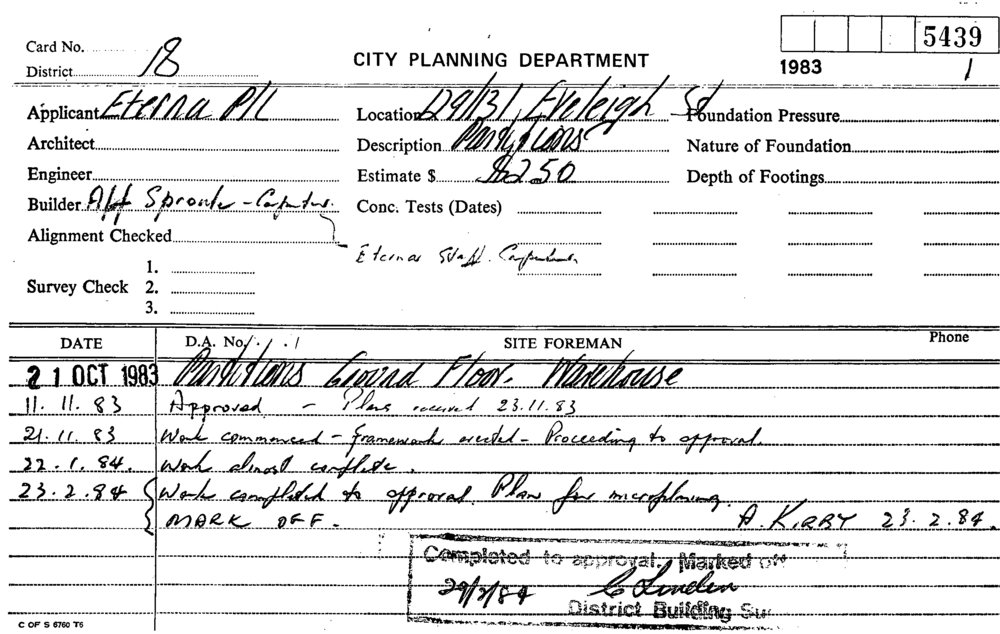 5439
1983 1
Card No.
District 18
CITY PLANNING DEPARTMENT
Applicant Eterna P/L
Location 129/131 Eveleigh St
Foundation Pressure
Architect
Description Partitions
Nature of Foundation
Engineer
Estimate $ $250
Depth of Footings
Builder Sproule - Carpenter.
Conc. Tests (Dates)
Alignment Checked
Eterna Staff. Carpenter
Survey Check 1.
2.
3.
DATE D.A. No. SITE FOREMAN Phone
21 OCT 1983 Partitions Ground Floor. Warehouse
11. 11. 83 Approved - Plans received 23.11.83
21. 11. 83 Work commenced - Framework erected - Proceeding to approval.
22. 1. 84. Work almost complete.
23. 2. 84 Work completed to approval. Plan for microfilming.
MARK OFF. A. KIRBY 23. 2. 84.
Completed to approval. Marked off
29/2/84
District Building Sur
C OF S 6760 T6